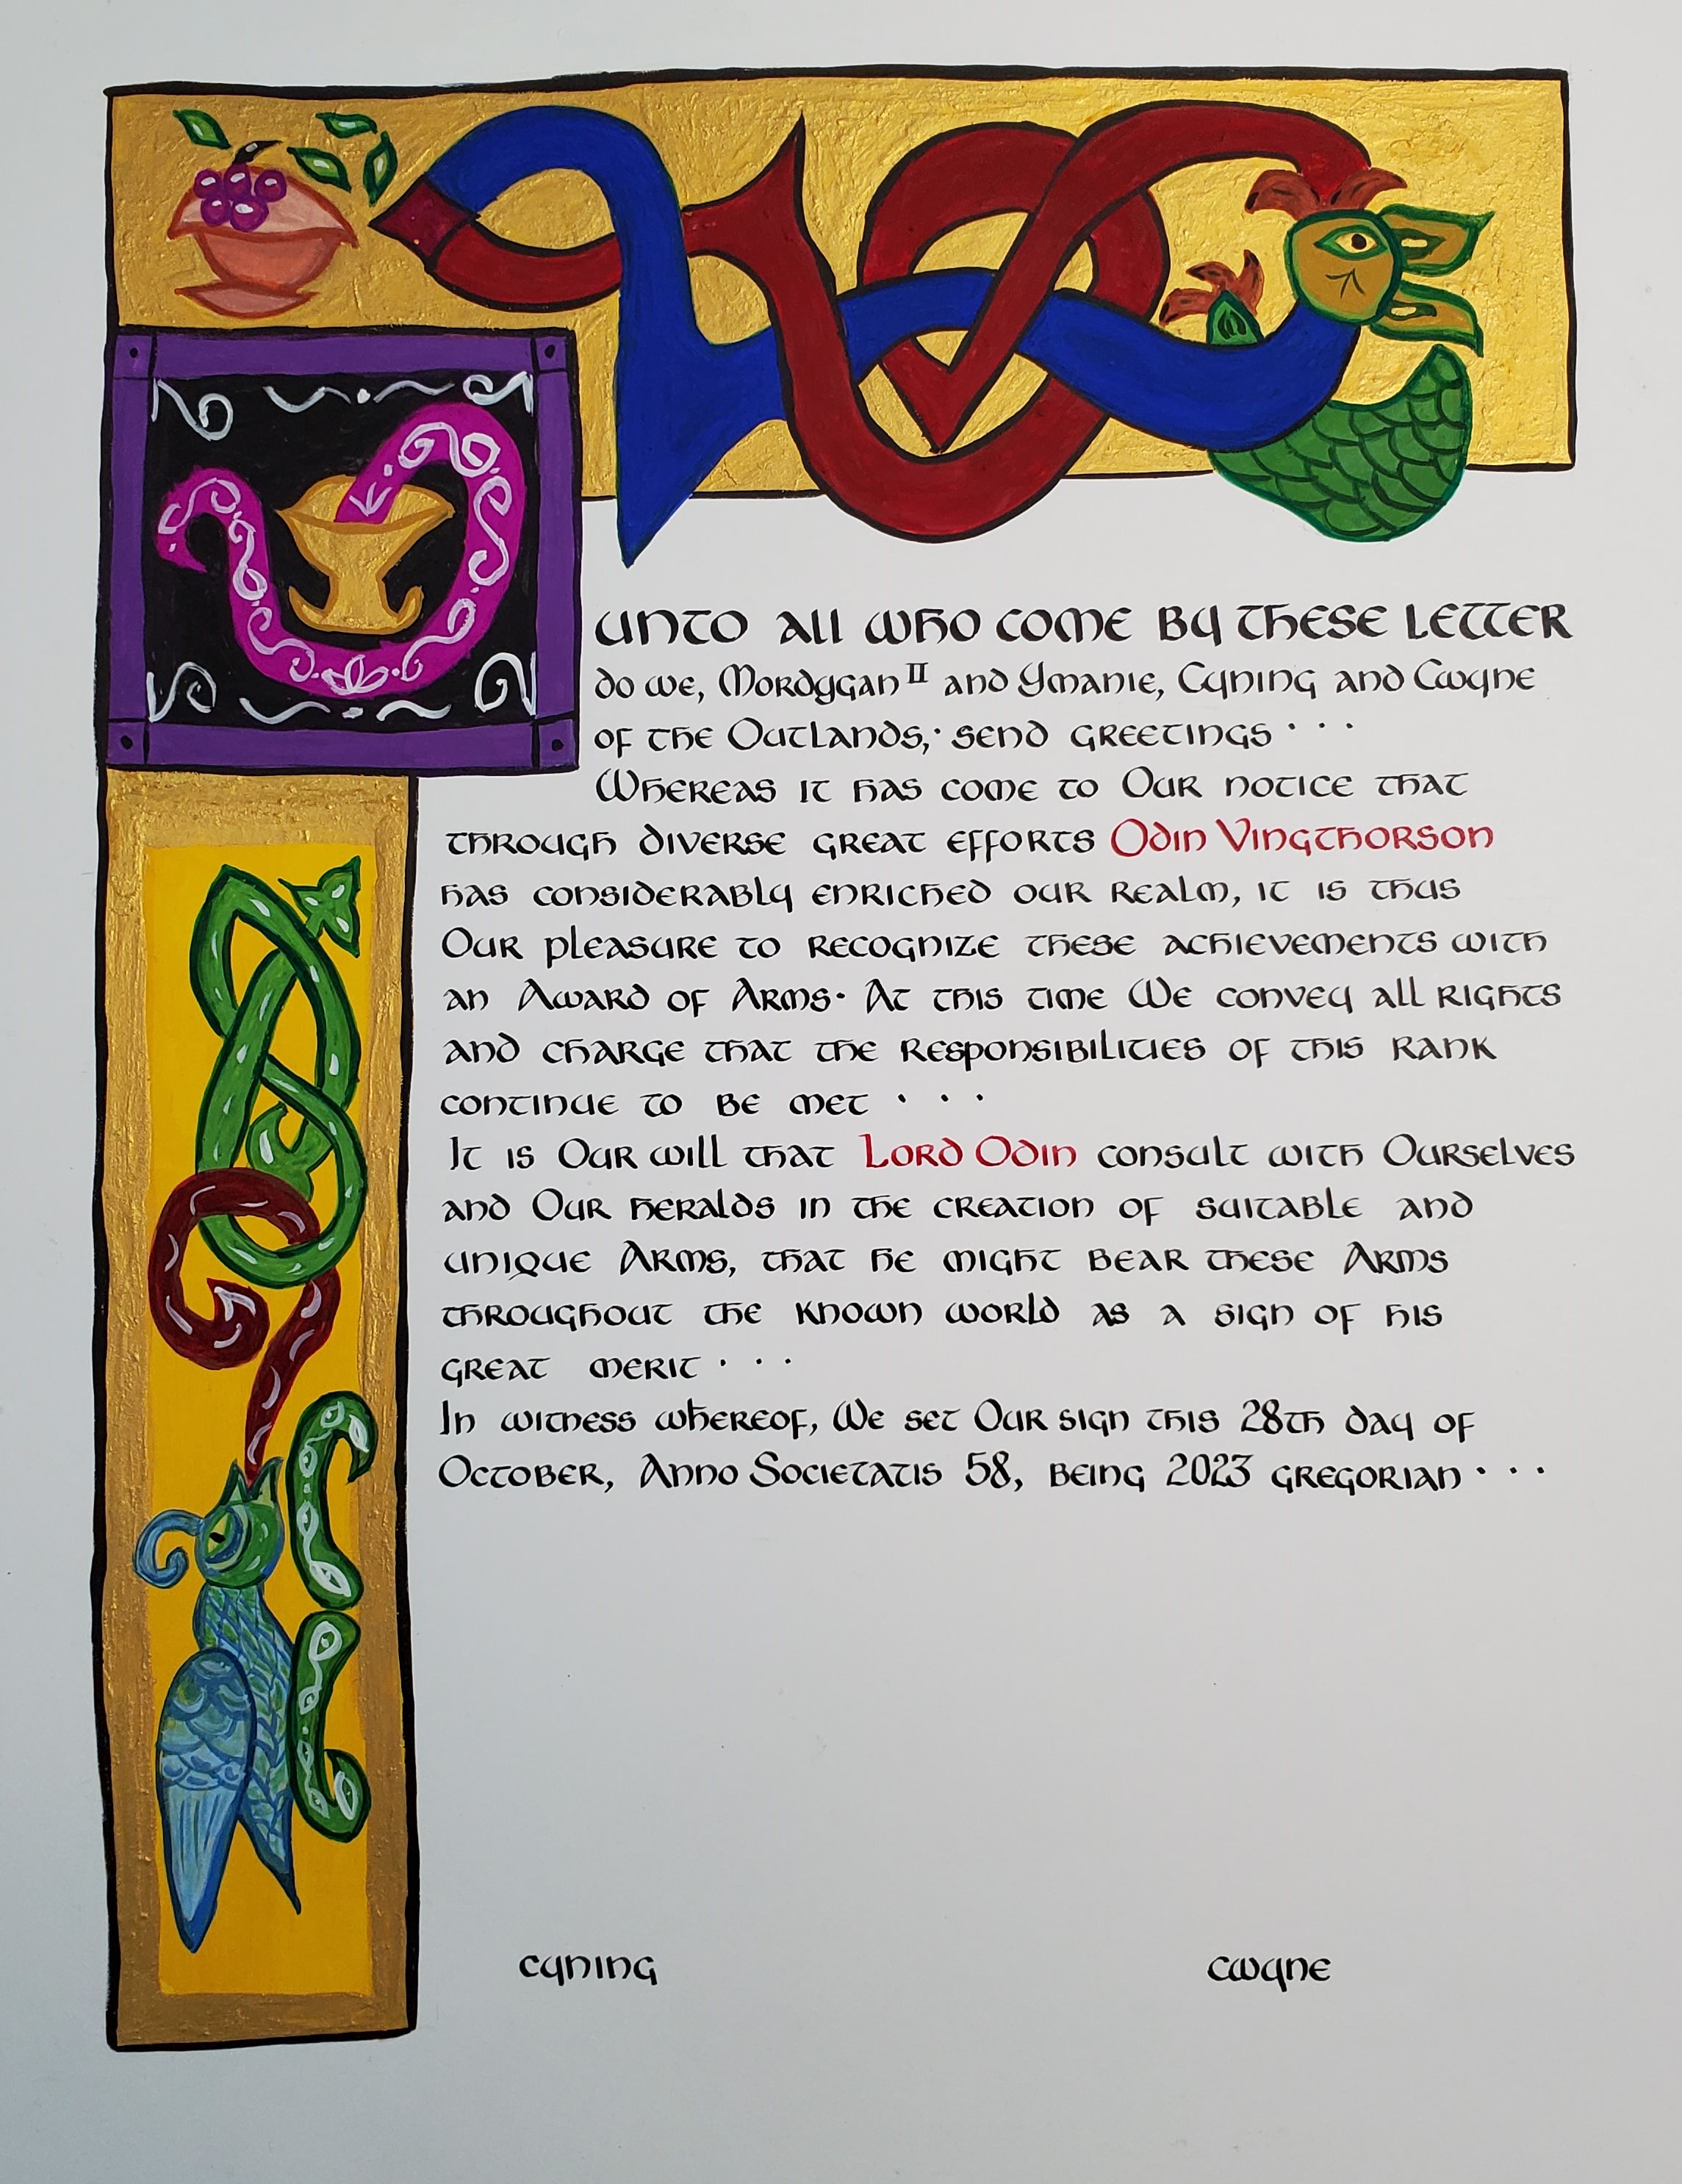 UNTO ALL WHO COME BY THESE LETTER
do we, Mordygan II and Ymanie, Cyning and Cwyne
of the Outlands,· send greetings · · ·
Whereas it has come to Our notice that
through diverse great efforts Odin Vingthorson
has considerably enriched our realm, it is thus
Our pleasure to recognize these achievements with
an Award of Arms· At this time We convey all rights
and charge that the responsibilities of this rank
continue to be met · · ·
It is Our will that Lord Odin consult with Ourselves
and Our heralds in the creation of suitable and
unique Arms, that he might bear these Arms
throughout the known world as a sign of his
great merit · · ·
In witness whereof, We set Our sign this 28th day of
October, Anno Societatis 58, being 2023 gregorian · · ·
cyning cwyne